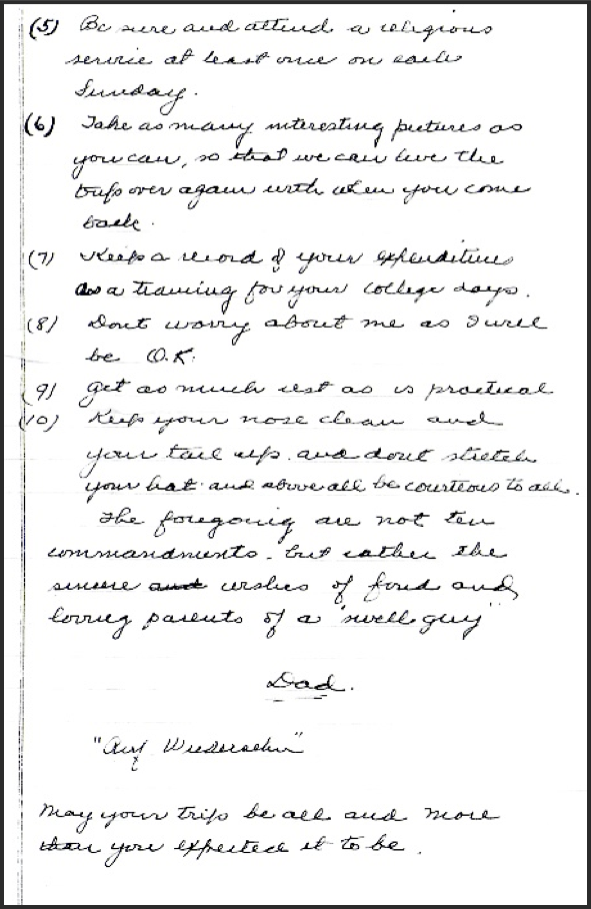 (5) Be sure and attend a religious
service at least once on each
Sunday.
(6) Take as many interesting pictures as
you can, so that we can live the
trip over again with when you come
back.
(7) Keep a record of your expenditures
as a training for your college days.
(8) Dont worry about me as I will
be O.K.
(9) Get as much rest as is practical
(10) Keep your nose clean and
your tail up and dont stretch
your hat and above all be courteous to all.
The foregoing are not ten
commandments - but rather the
sincere and wishes of fond and
loving parents of a "swell guy"
Dad.
"Auf Wiedersehn"
May your trip be all and more
than you expected it to be.